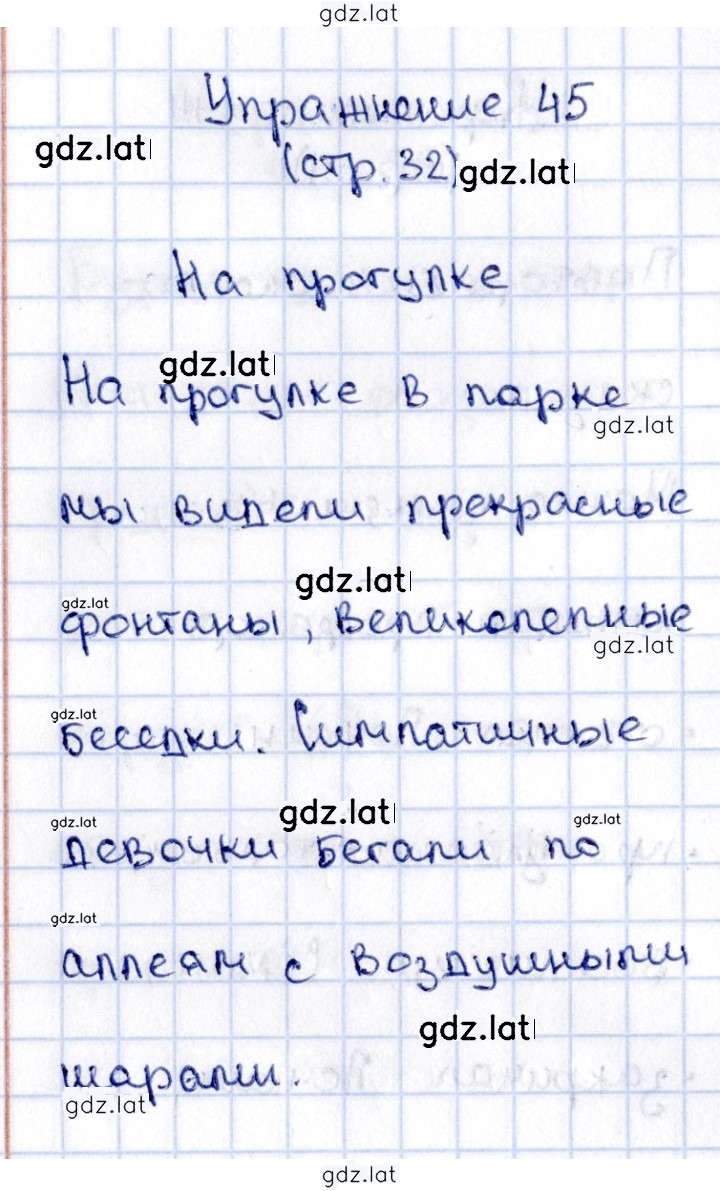 gdz.lat
Упражнение 45
gdz.lat
(стр. 32) gdz.lat
На прогулке
gdz.lat
На прогулке в парке
gdz.lat
мы видели прекрасные
gdz.lat
gdz.lat
фонтаны, великолепные
gdz.lat
gdz.lat
беседки. Симпатичные
gdz.lat
gdz.lat
gdz.lat
девочки бегали по
gdz.lat
аллеям с воздушными
gdz.lat
шарами.
gdz.lat
gdz.lat